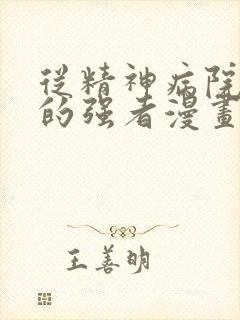 從精神病院
的强者漫畫
王善明